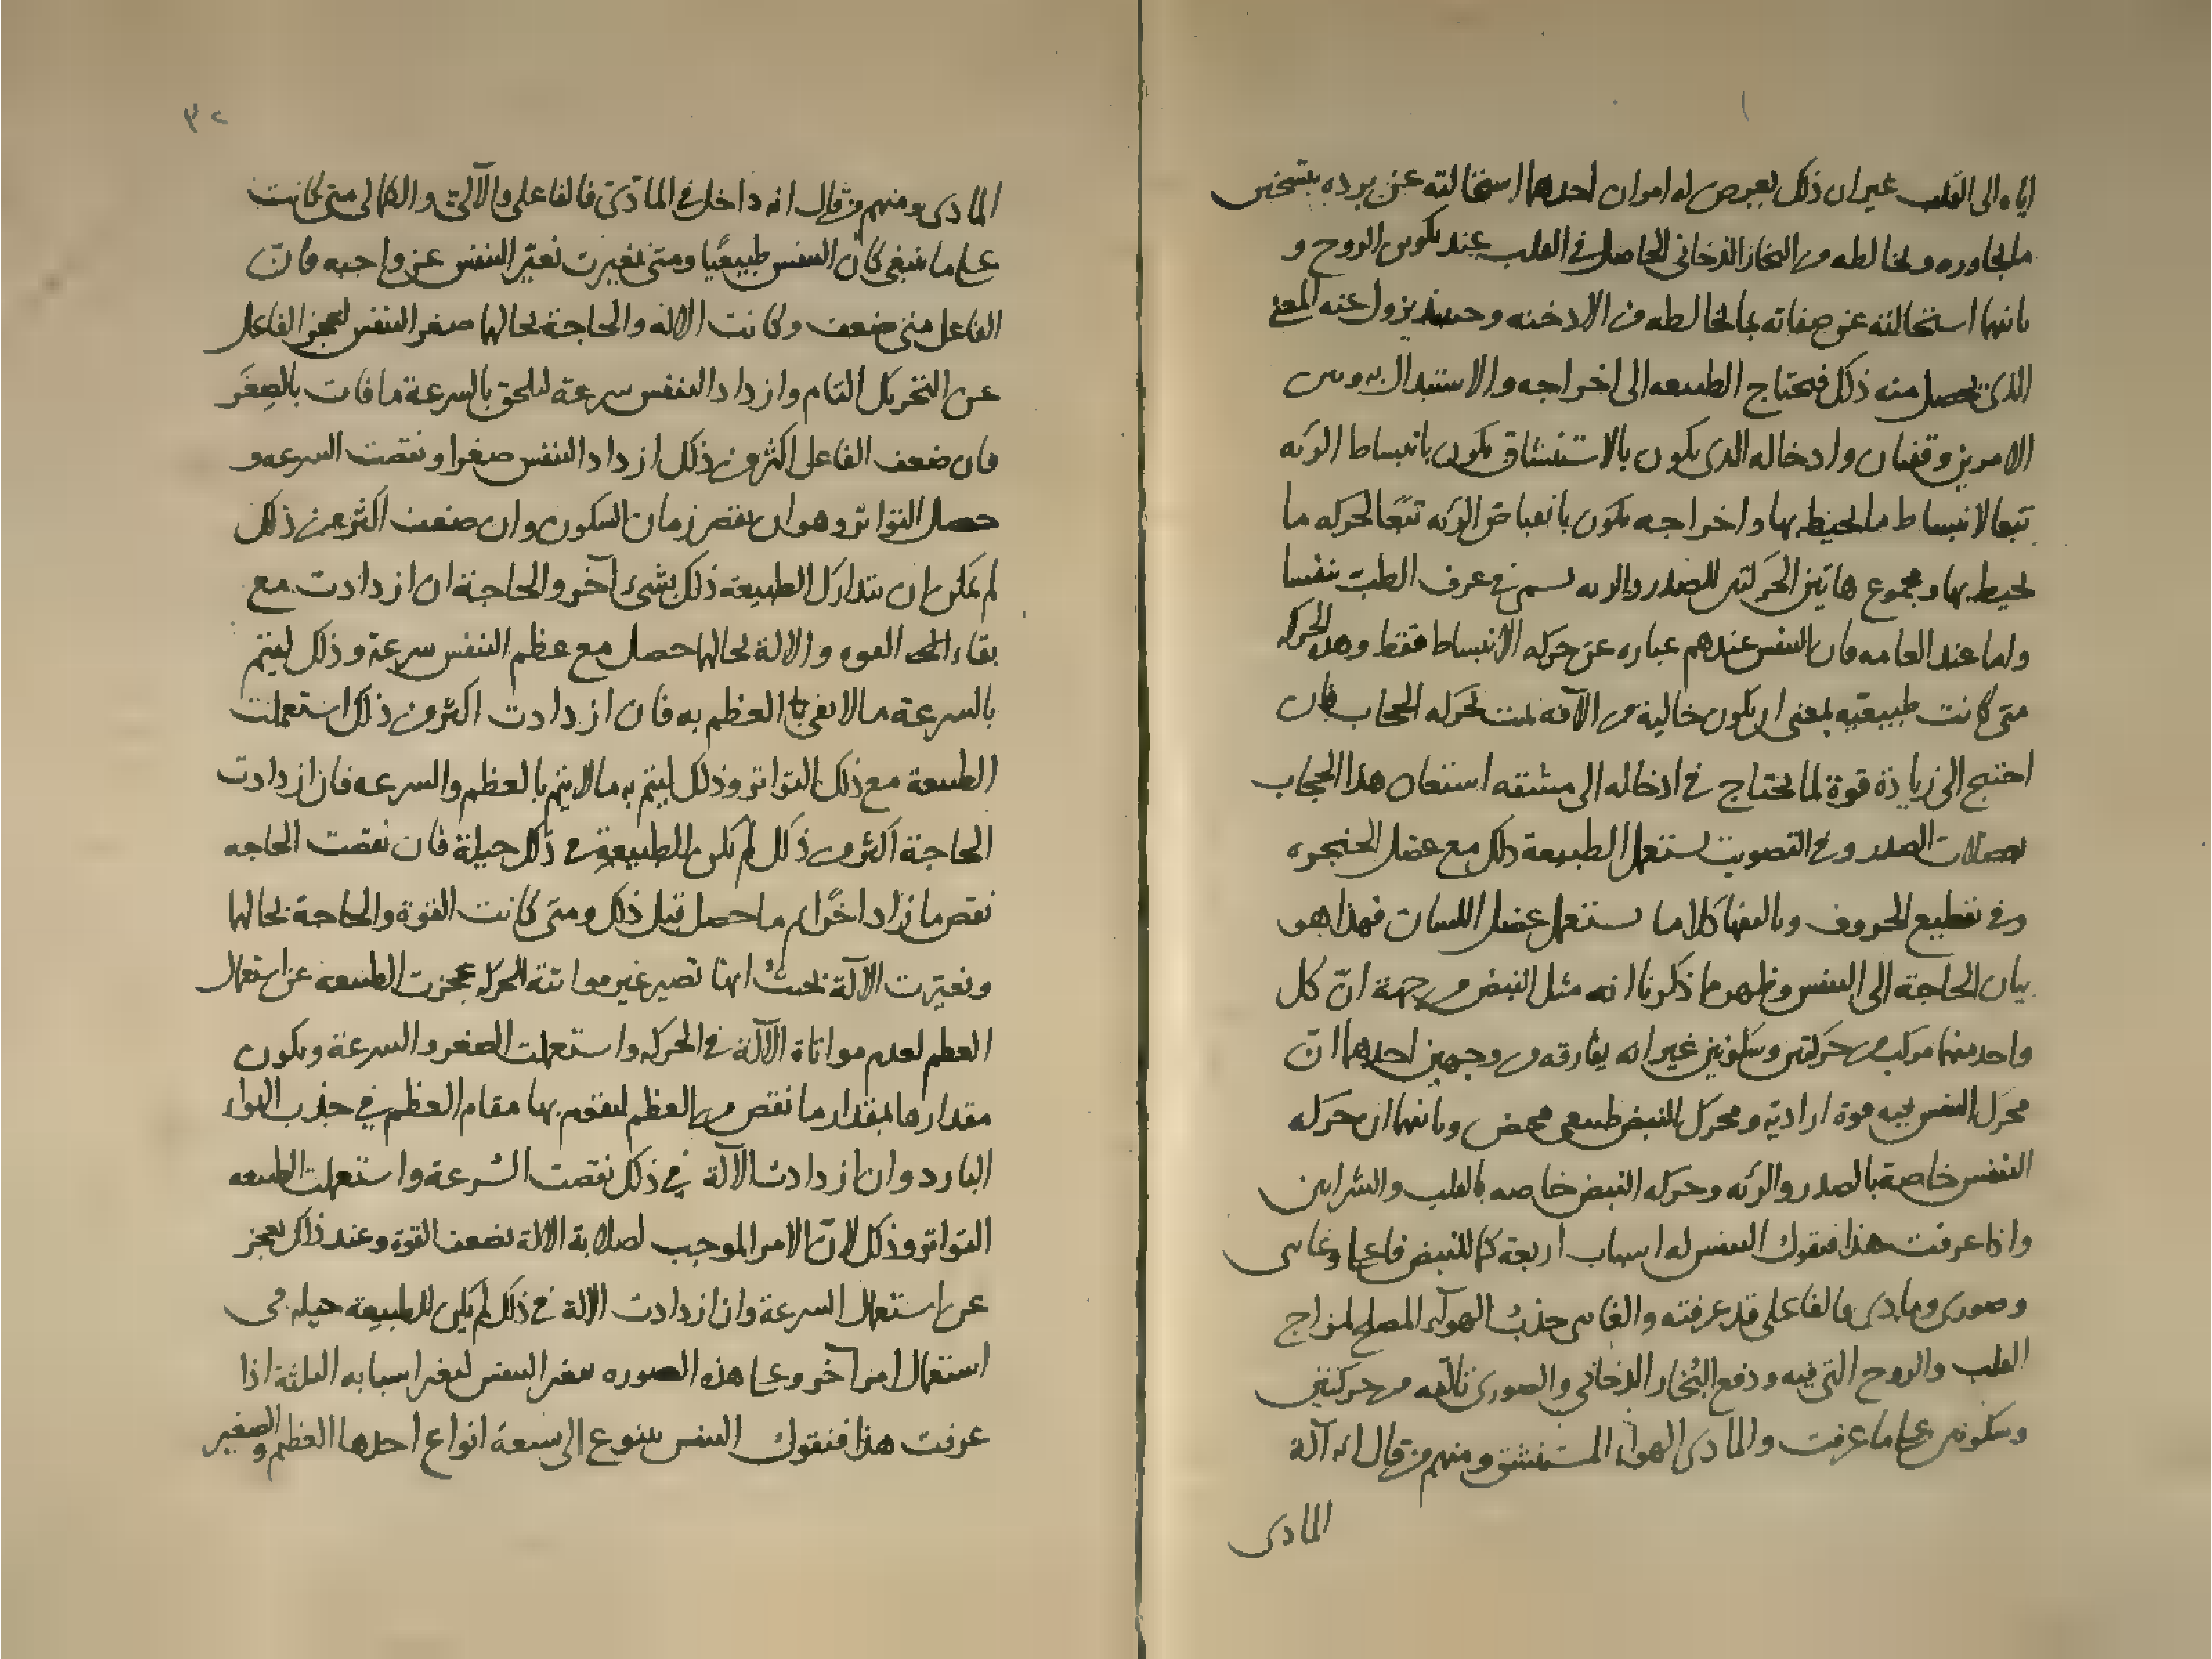 اياه الى القلب غير ان ذلك يعرض له امران احدهما استحالته عن برده بتسخين
ما يجاوره ومخالطه من البخار الدخانى الحاصل فى القلب عند تكون الروح و
ثانيهما استحالته عن صفاته بما يخالطه من الادخنه وحينئذ يزول عنه المعنى
الذى يحصل منه ذلك فيحتاج الطبيعه الى اخراجه والاستبدال به وبين
الامرين وقفتان وادخاله الذى يكون بالاستنشاق يكون بانبساط الرئه
تبعا لانبساط ما يحيط بها واخراجه يكون بانقباض الرئه تبعًا لحركه ما
يحيط بها ومجموع هاتين الحركتين للصدر والريه يسمى فى عرف الطب تنفسا
واما عند العامه فان التنفس عندهم عباره عن حركه الانبساط فقط وهذه الحركه
متى كانت طبيعيه بمعنى ان يكون خالية من الآفه تمت بحركه الحجاب فان
احتيج الى زيادة قوة لما يحتاج فى ادخاله الى مشقه استعان هذا الحجاب
بعضلات الصدر وفى التصويت تستعمل الطبيعة ذلك مع عضل الحنجره
وفى تقطيع الحروف وتاليفها كلاما تستعمل عضل اللسان فهذا هو
بيان الحاجة الى التنفس وظهر مما ذكرنا انه مثل النبض من جهة انّ كل
واحد منهما مركب من حركتين وسكونين غير انه يفارقه من وجهين احدهما انّ
محرك التنفس فيه قوة ارادية ومحرك النبض طبيعى محض وثانيهما ان حركه
التنفس خاصة بالصدر والرئه وحركه النبض خاصه بالقلب والشرايين
واذا عرفت هذا فنقول التنفس له اسباب اربعة كما للنبض فاعلى وغائى
وصورى ومادى فالفاعلى قد عرفته والغائى جذبُ الهوآء المصلح لمزاج
القلب والروح التى فيه ودفع البُخار الدخانى والصورى تالّفه من حركتين
وسكونين على ما عرفت والمادى الهواء المستنشق ومنهم من قال انه آلة
المادى
٣٢
المادى ومنهم من قال انه داخل فى المادّى فالفاعلى والآلىّ والكمالى متى كانت
على ما ينبغى كان التنفس طبيعيًا ومتى تغيرت تغيّر التنفس عن واجبه فانّ
الفاعل متى ضعف وكانت الاله والحاجة بحالها صغر التنفس لعجز الفاعل
عن التحريك التام وازداد التنفس سرعة ليلحق بالسرعة ما فات بالصِغَر
فان ضعف الفاعل اكثر من ذلك ازداد التنفس صغرا ونقصت السرعه و
حصل التواتر وهو ان ينقص زمان السكون وان ضعف اكثر من ذلك
لم يمكن ان تتدارك الطبيعة ذلك بشىء آخر والحاجة ان ازدادت مع
بقاء القوه والالة بحالها حصل مع عظم التنفس سرعة وذلك ليتم
بالسرعة ما لا يفى العظم به فان ازدادت اكثر من ذلك استعملت
الطبيعة مع ذلك التواتر وذلك ليتم به ما لا يتم بالعظم والسرعه فان ازدادت
الحاجة اكثر من ذلك لم يكن للطبيعة فى ذلك حيلة فان نقصت الحاجه
نقص ما زاد اخرًا ثم ما حصل قبل ذلك ومتى كانت القوة والحاجة بحالها
وتغيّرت الآلة بحيث انها تصير غير مواتية للحركه عجزت الطبيعه عن استعمال
العظم لعدم مواتاة الآلة فى الحركه واستعملت الصغر والسرعة ويكون
مقدارها بمقدار ما نقص من العظم ليقوم بها مقام العظم فى جذب الهواء
البارد وان ازدادت الآلة فى ذلك نقصت السّرعة واستعملت الطبيعه
التواتر وذلك لانّ الامر الموجب لصلابة الالة يضعف القوة وعند ذلك يعجز
عن استعمال السرعة وان ازدادت الالة فى ذلك لم يكن للطبيعة حيله فى
استعمال امر آخر وعلى هذه الصوره تغير التنفس لتغير اسبابه الثلثة اذا
عرفت هذا فنقول التنفس يتنوع الى انواع احدها العظم والصغير